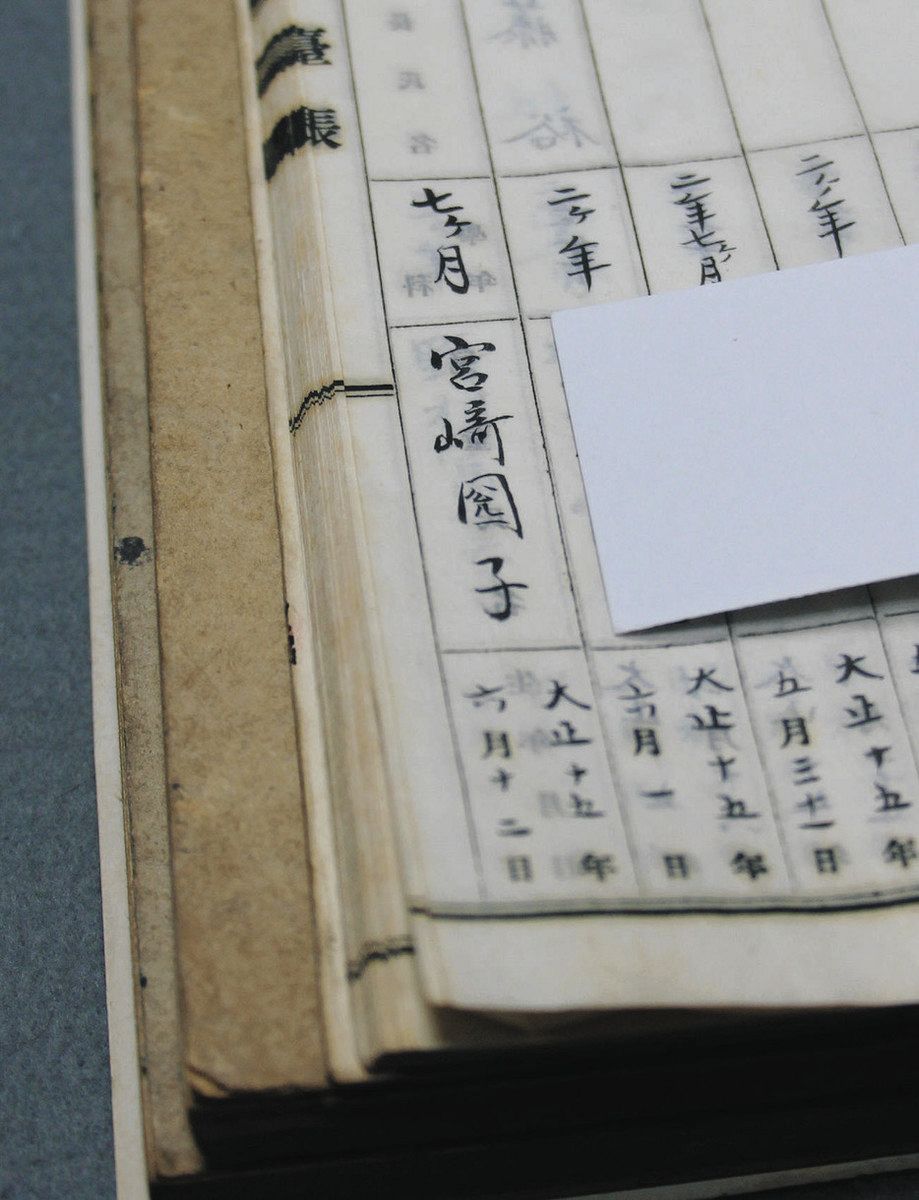 二ヶ年
二年七ヶ月
二ヶ年
七ヶ月
宮﨑園子
大正十五年
五月三十一日
大正十五年
六月一日
大正十五年
六月十二日
臺帳